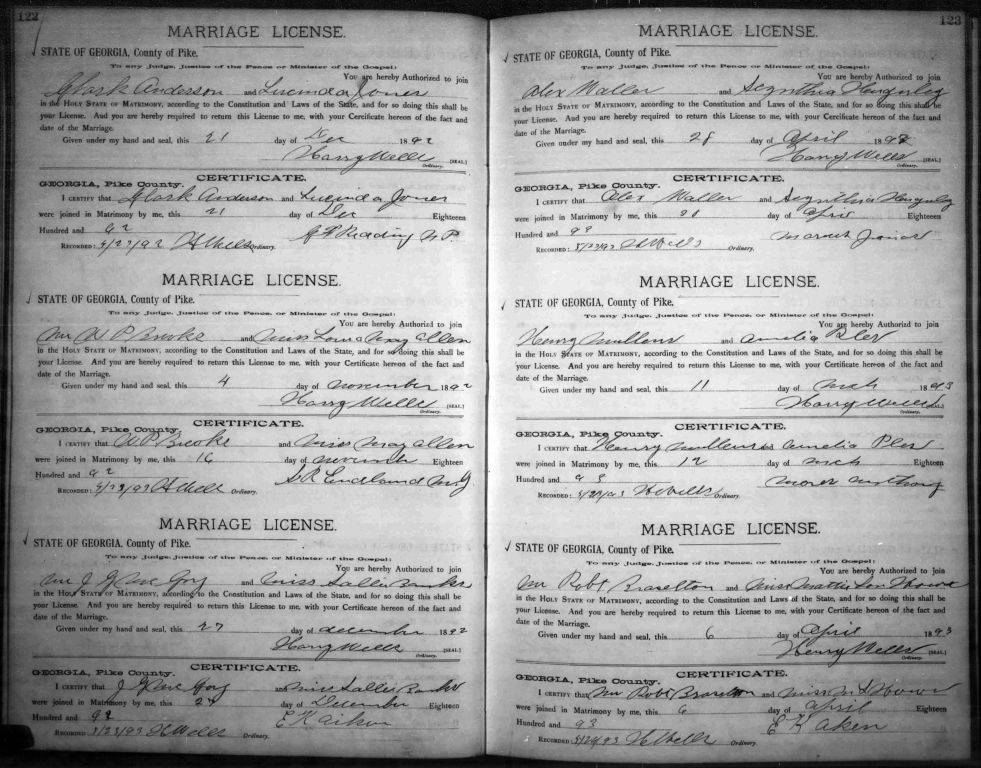 122
MARRIAGE LICENSE.
STATE OF GEORGIA, County of Pike.
To any Judge, Justice of the Peace or Minister of the Gospel:
You are hereby Authorized to join
Clark Anderson and Lucinda Jones
in the HOLY STATE OF MATRIMONY, according to the Constitution and Laws of the State, and for so doing this shall be
your License. And you are hereby required to return this License to me, with your Certificate hereon of the fact and
date of the Marriage.
Given under my hand and seal, this 21 day of Dec 1892
Harry Wells [SEAL.]
Ordinary.
CERTIFICATE.
GEORGIA, Pike County.
I CERTIFY that Clark Anderson and Lucinda Jones
were joined in Matrimony by me, this 21 day of Dec Eighteen
Hundred and 92
RECORDED: 3/23/93 H Wells Ordinary. Redding N.P.
MARRIAGE LICENSE.
STATE OF GEORGIA, County of Pike.
To any Judge, Justice of the Peace, or Minister of the Gospel:
You are hereby Authorized to join
Mr W P Brooke and Miss May Allen
in the HOLY STATE OF MATRIMONY, according to the Constitution and Laws of the State, and for so doing this shall be
your License. And you are hereby required to return this License to me, with your Certificate hereon of the fact and
date of the Marriage.
Given under my hand and seal, this 4 day of November 1892
Harry Wells [SEAL]
Ordinary.
CERTIFICATE.
GEORGIA, Pike County.
I CERTIFY that W P Brooke and Miss May Allen
were joined in Matrimony by me, this 16 day of Eighteen
Hundred and 92
RECORDED: 3/23/93 H Wells Ordinary.
MARRIAGE LICENSE.
STATE OF GEORGIA, County of Pike.
To any Judge, Justice of the Peace, or Minister of the Gospel:
You are hereby Authorized to join
Mr J G and Miss Sallie Banks
in the HOLY STATE OF MATRIMONY, according to the Constitution and Laws of the State, and for so doing this shall be
your License. And you are hereby required to return this License to me, with your Certificate hereon of the fact and
date of the Marriage.
Given under my hand and seal, this 27 day of December 1892
Harry Wells [SEAL.]
Ordinary.
CERTIFICATE.
GEORGIA, Pike County.
I CERTIFY that J G and Miss Sallie Banks
were joined in Matrimony by me, this day of December Eighteen
Hundred and 92 E K Aikon
RECORDED: 3/23/93 H Wells Ordinary.
123
MARRIAGE LICENSE.
STATE OF GEORGIA, County of Pike.
To any Judge, Justice of the Peace or Minister of the Gospel:
You are hereby Authorized to join
Alex Waller and
in the HOLY STATE OF MATRIMONY, according to the Constitution and Laws of the State, and for so doing this shall be
your License. And you are hereby required to return this License to me, with your Certificate hereon of the fact and
date of the Marriage.
Given under my hand and seal, this 28 day of April
Harry Wells [SEAL.]
Ordinary.
CERTIFICATE.
GEORGIA, Pike County.
I CERTIFY that Alex Waller and
were joined in Matrimony by me, this day of April Eighteen
Hundred and
RECORDED: 3/23/93 H Wells Ordinary.
MARRIAGE LICENSE.
STATE OF GEORGIA, County of Pike.
To any Judge, Justice of the Peace, or Minister of the Gospel:
You are hereby Authorized to join
Henry Mullens and Amelia
in the HOLY STATE OF MATRIMONY, according to the Constitution and Laws of the State, and for so doing this shall be
your License. And you are hereby required to return this License to me, with your Certificate hereon of the fact and
date of the Marriage.
Given under my hand and seal, this 11 day of Mch 1893
Harry Wells [SEAL.]
Ordinary.
CERTIFICATE.
GEORGIA, Pike County.
I CERTIFY that Henry Mullens Amelia
were joined in Matrimony by me, this 12 day of Mch Eighteen
Hundred and 93
RECORDED: H Wells Ordinary.
MARRIAGE LICENSE.
STATE OF GEORGIA, County of Pike.
To any Judge, Justice of the Peace, or Minister of the Gospel:
You are hereby Authorized to join
Mr Robt Braselton and Miss Mattie Lou
in the HOLY STATE OF MATRIMONY, according to the Constitution and Laws of the State, and for so doing this shall be
your License. And you are hereby required to return this License to me, with your Certificate hereon of the fact and
date of the Marriage.
Given under my hand and seal, this 6 day of April 1893
Henry Wells [SEAL.]
Ordinary.
CERTIFICATE.
GEORGIA, Pike County.
I CERTIFY that Mr Robt Braselton and Miss M L
were joined in Matrimony by me, this 6 day of April Eighteen
Hundred and 93 E K Aken
RECORDED: H Wells Ordinary.